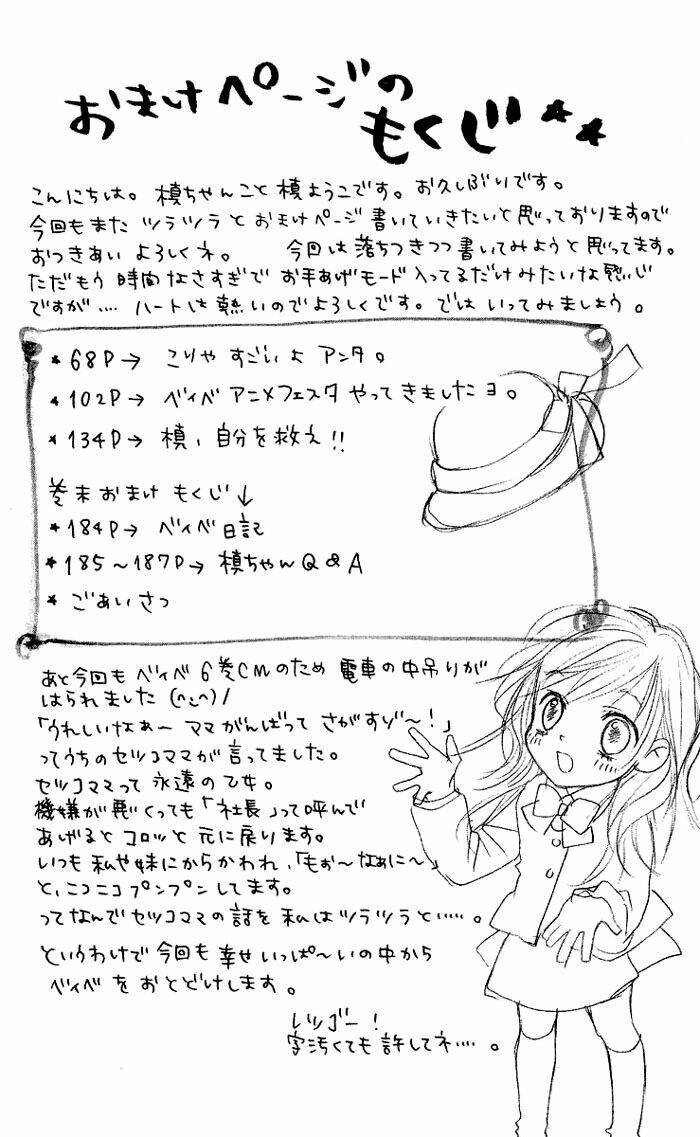 おまけページの
もくじ★★
こんにちは。槙ちゃんこと槙ようこです。お久しぶりです。
今回もまたツラツラとおまけページ書いていきたいと思っておりますので
おつきあいよろしくネ。　今回は落ちつきつつ書いてみようと思ってます。
ただもう時間なさすぎでお手あげモード入ってるだけみたいな感じ
ですが…ハートは熱いのでよろしくです。ではいってみましょう。
*68P→ こりゃすごいよアンタ。
*102P→ ベイベアニメフェスタやってきましたヨ。
*134P→ 槙、自分を救え!!
巻末おまけもくじ↓
*184P→ ベイベ日記
*185～187P→ 槙ちゃんQ&A
*ごあいさつ
あと今回もベイベ6巻CMのため電車の中吊りが
はられました(^_^)/
「うれしいなぁーママがんばってさがすゾ～!」
ってうちのセツコママが言ってました。
セツコママって永遠の乙女。
機嫌が悪くっても「社長」って呼んで
あげるとコロッと元に戻ります。
いつも私や妹にからかわれ、「もぉ～なぁに～」
と、ニコニコプンプンしてます。
ってなんでセツコママの話を私はツラツラと……。
というわけで今回も幸せいっぱ～いの中から
ベイベをおとどけします。
レッゴー!
字汚くても許してネ…。